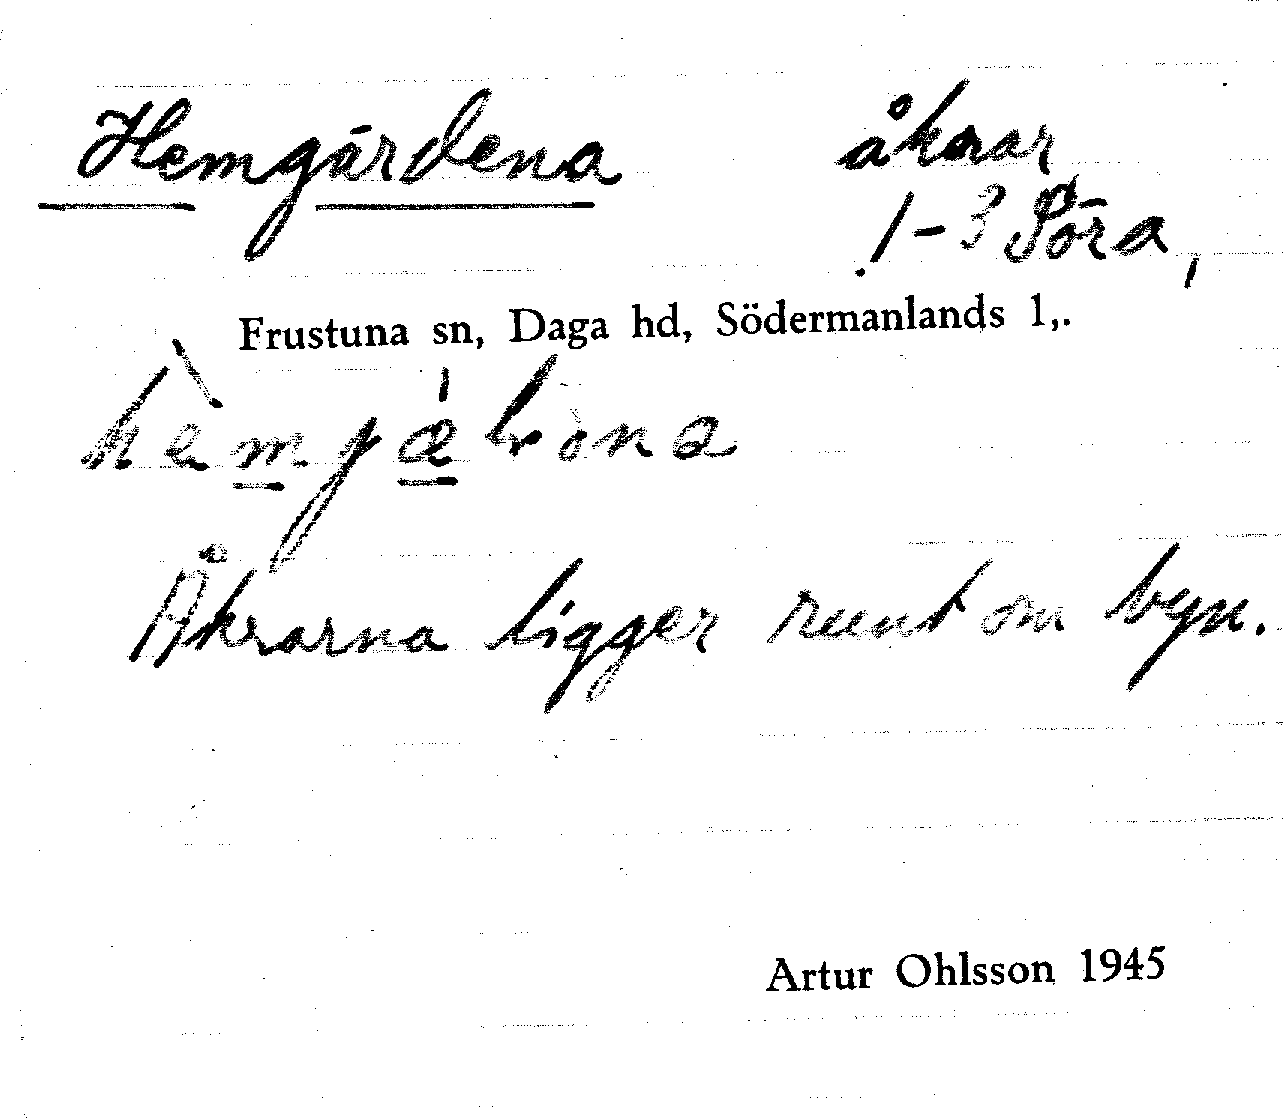 Hemgärdena åkrar
1-3 Söra,
Frustuna sn, Daga hd, Södermanlands l,.
Åkrarna ligger runt om byn.
Artur Ohlsson 1945